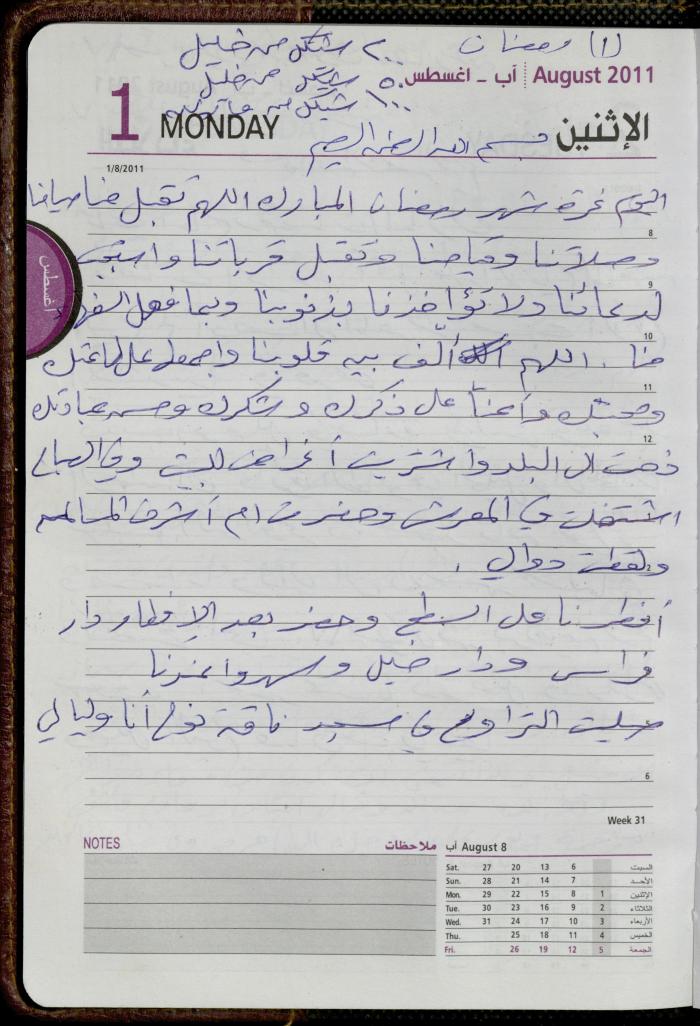 (١) رمضان ٢٠٠ شيكل من خليل
٥٠ شيكل من خليل
١٠٠ شيكل من
August 2011 آب - اغسطس
1 MONDAY الإثنين
بسم الله الرحمن الرحيم
1/8/2011
اليوم غرة شهر رمضان المبارك اللهم تقبل منا صيامنا
8
وصلاتنا وقيامنا وتقبل قرباتنا واستجب
9
لدعائنا ولا تؤاخذنا بذنوبنا وبما فعل السفهاء
10
منا . اللهم ألّف بين قلوبنا واجمعنا على طاعتك
11
ومحبتك وأعنّا على ذكرك وشكرك وحسن عبادتك
12
ذهبت الى البلد واشتريت أغراض للبيت وفي الصباح
اشتغلت في المعرش وحضرت ام أشرف المسالمه
ولقطت دوالي .
2
أفطرنا على السطح وحضر بعد الإفطار دار
فراس ودار خليل وسهروا عندنا
صليت التراويح في مسجد ناقة نوح أنا وليالي
6
Week 31
NOTES ملاحظات
آب August 8
Sat. 27 20 13 6 السبت
Sun. 28 21 14 7 الأحد
Mon. 29 22 15 8 1 الإثنين
Tue. 30 23 16 9 2 الثلاثاء
Wed. 31 24 17 10 3 الأربعاء
Thu. 25 18 11 4 الخميس
Fri. 26 19 12 5 الجمعة
أغسطس